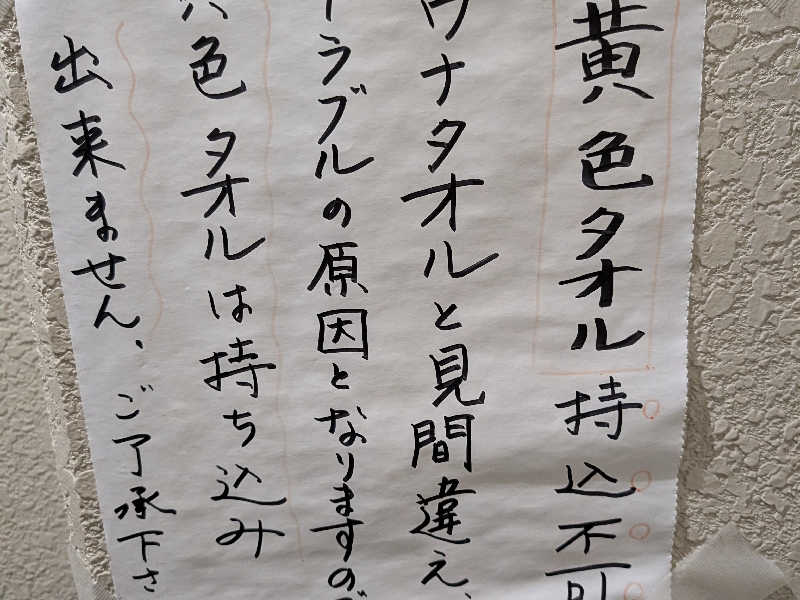 黄色タオル持込不可
ウナタオルと見間違え、
トラブルの原因となりますので
黄色タオルは持ち込み
出来ません、ご了承下さ